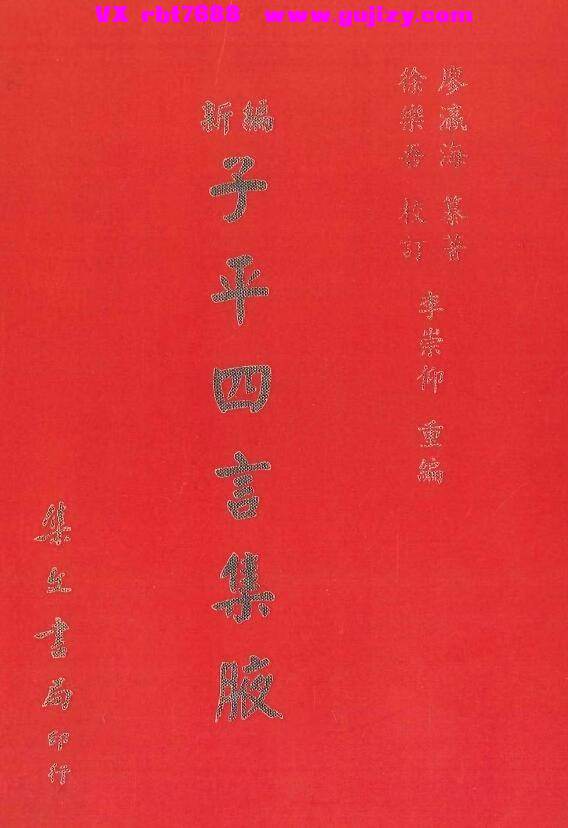 VX rbt7888 www.gujizy.com
廖瀛海 纂著
徐樂吾 校訂
李崇仰 重編
新編
子平四言集腋
集文書局印行